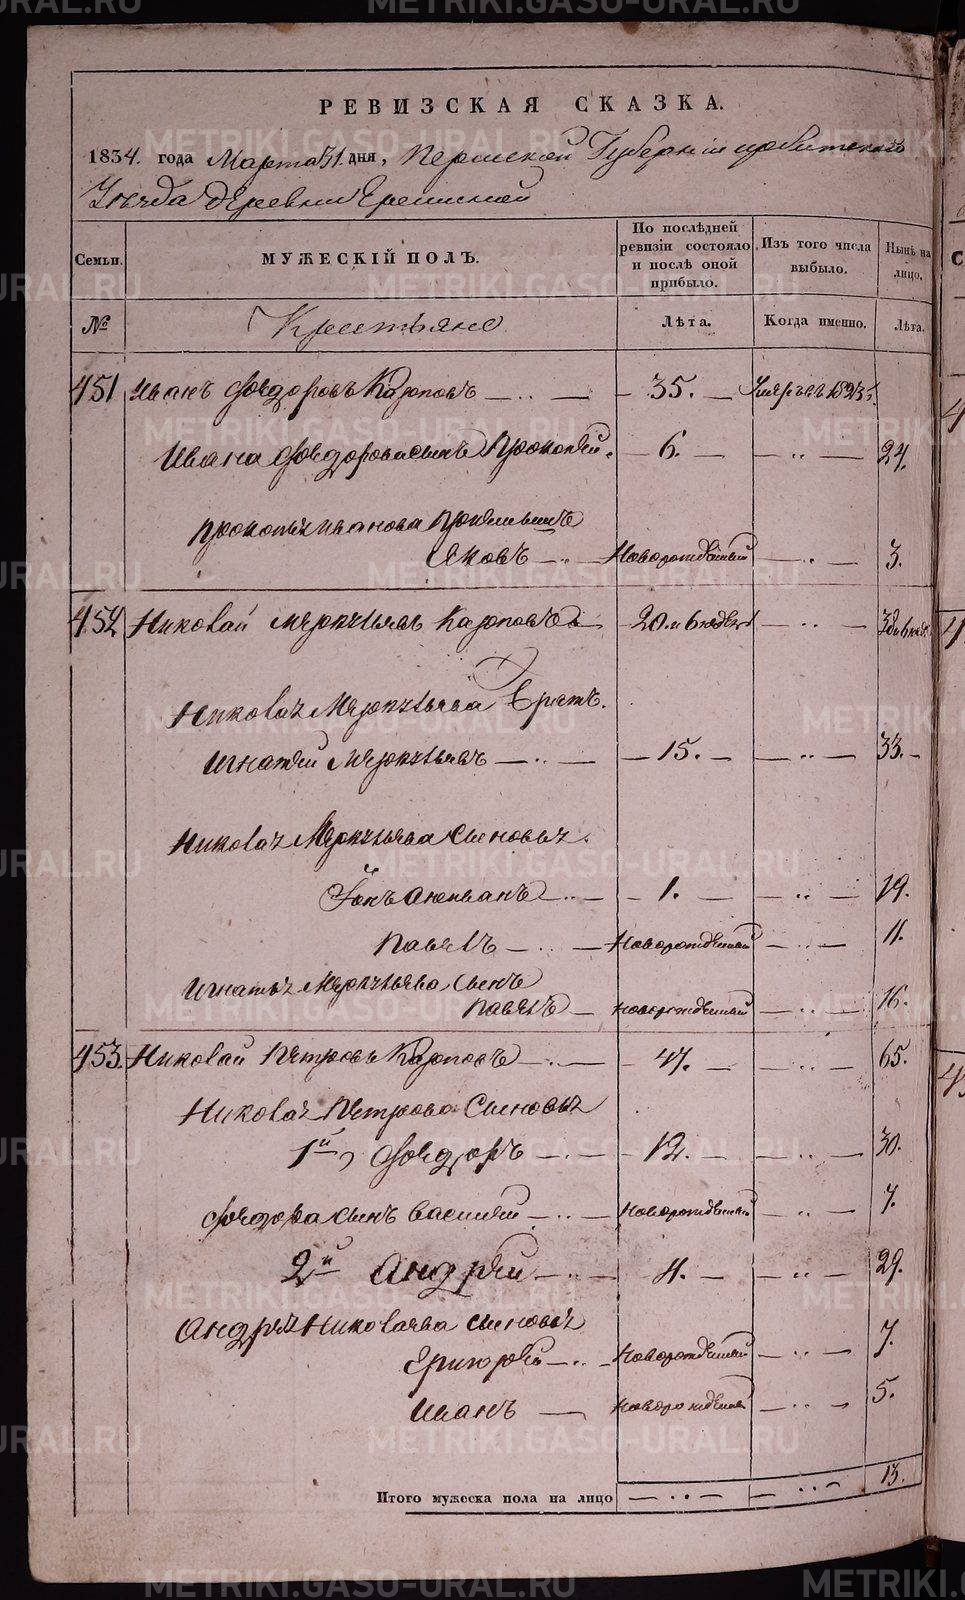 РЕВИЗСКАЯ СКАЗКА.
1834. года Марта 31. дня, Пермской Губернии Ирбитского
Уезда деревни
Семьи. МУЖЕСКІЙ ПОЛЪ. По послѣдней ревизіи состояло и послѣ оной прибыло. Изъ того числа выбыло. Нынѣ на лицо.
№ Крестьяне Лѣта. Когда именно. Лѣта.
451 Иванъ Федоровъ Карповъ 35. 1823
Ивана Федорова сынъ Прокопей. 6. 24.
Прокопья Иванова
Яковъ Новорожденный 3.
452 Николай Карповъ 20
Николая братъ.
Игнатей 15. 33.
Николая сыновья.
1. 19.
Павелъ Новорожденный 11.
Игнатья сынъ
Павелъ Новорожденный 16.
453. Николай Петровъ Карповъ 47. 65.
Николая Петрова сыновья
1й Федоръ 12. 30.
Федора сынъ Василей Новорожденный 7.
2й Андрей 11. 29.
Андрея Николаева сыновья
Григорей Новорожденный 7.
Иванъ Новорожденный 5.
Итого мужеска пола на лицо 13.
METRIKI.GASO-URAL.RU